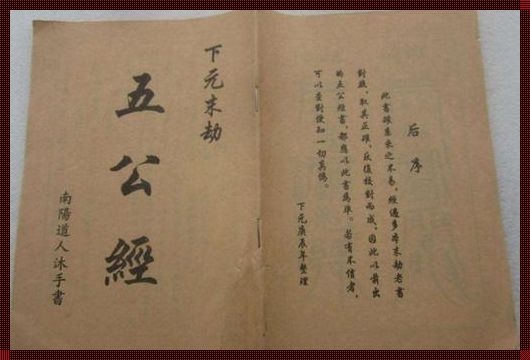 下元末劫
五公經
南陽道人沐手書
后序
此書確系來之不易,經過多本末劫老書
對照,取其正確,反復校對而成,因此以前出
的五公經書,都應以此書為準。若有不信者,
可以查對便知一切真偽。
下元庚辰年整理